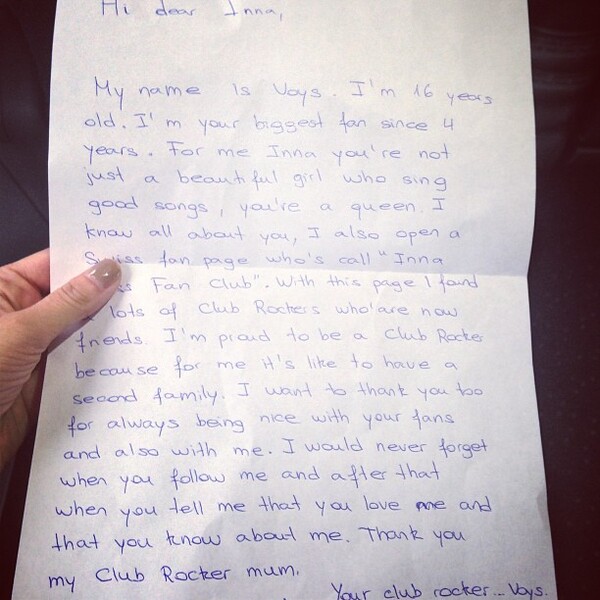 Hi dear Inna,
My name is Voys. I'm 16 years
old. I'm your biggest fan since 4
years. For me Inna you're not
just a beautiful girl who sing
good songs, you're a queen. I
know all about you, I also open a
Swiss fan page who's call "Inna
ss Fan Club". With this page I found
lots of Club Rockers who'are now
friends. I'm proud to be a Club Rocker
because for me it's like to have a
second family. I want to thank you too
for always being nice with your fans
and also with me. I would never forget
when you follow me and after that
when you tell me that you love me and
that you know about me. Thank you
my Club Rocker mum.
Your club rocker... Voys.